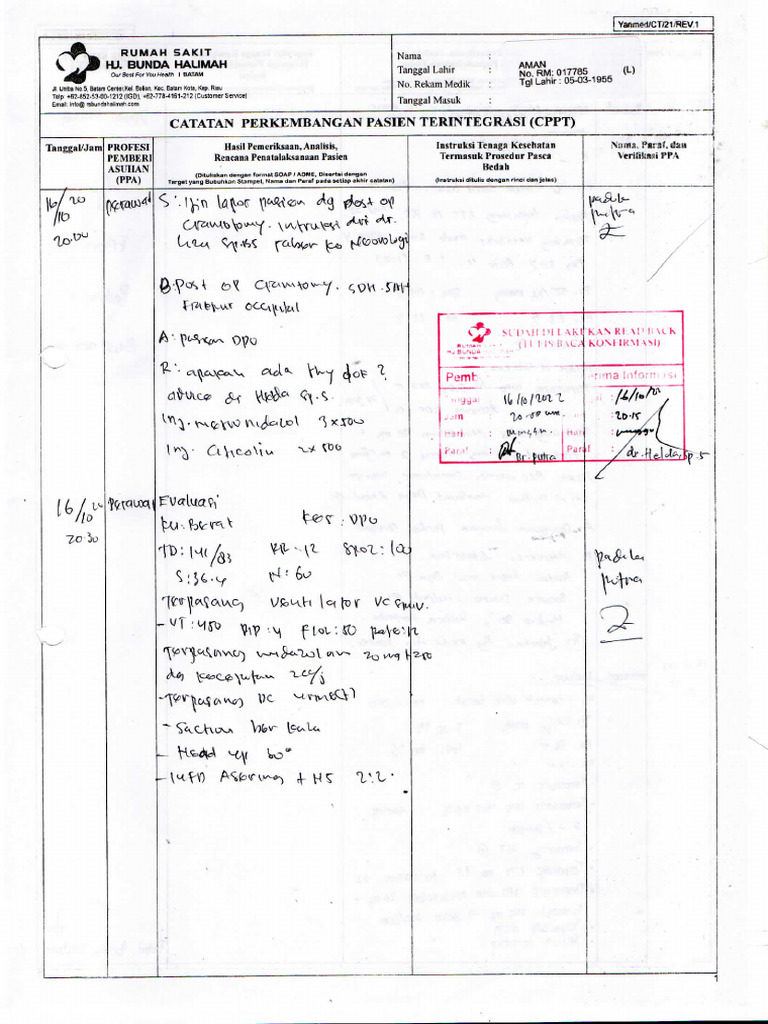 Yanmed/CT/21/REV.1
RUMAH SAKIT
HJ. BUNDA HALIMAH
Our Best For You Health I BATAM
Jl. Uniba No.5, Batam Center, Kel. Balian, Kec. Batam Kota, Kep. Riau
Telp: +62-852-53-60-1212 (IGD), +62-778-4161-212 (Customer Service)
Email: info@rsbundahalimah.com
Nama :
Tanggal Lahir :
No. Rekam Medik :
Tanggal Masuk :
AMAN
No. RM: 017785 (L)
Tgl Lahir : 05-03-1955
CATATAN PERKEMBANGAN PASIEN TERINTEGRASI (CPPT)
Tanggal/Jam
PROFESI PEMBERI ASUHAN (PPA)
Hasil Pemeriksaan, Analisis,
Rencana Penatalaksanaan Pasien
(Dituliskan dengan format SOAP / ADME, Disertai dengan
Target yang Butuhkan Stampel, Nama dan Paraf pada setiap akhir catatan)
Instruksi Tenaga Kesehatan
Termasuk Prosedur Pasca
Bedah
(Instruksi ditulis dengan rinci dan jelas)
Nama, Paraf, dan
Verifikasi PPA
16/10 20
20.00
Perawat
S: Izin lapor pasien dg post op
craniotomy. intruksi dri dr.
sp.BS raber ko Neorologi
O: Post op craniotomy. SDH. SAH
Fraktur occipital
A: pasien DPO
R: apakah ada thy dok?
advice dr Helda sp.s.
Inj. metronidazol 3x500
Inj. citicolin 2x500
padila
putra
SUDAH DI LAKUKAN READ BACK
(TULIS BACA KONFIRMASI)
Tanggal : 16/10/2022
Jam : 20.00
Hari : minggu
Paraf : Br. Putra
16/10/22
20.15
Hari : minggu
Paraf : dr. Helda, Sp.S
16/10 20
20.30
Perawat
Evaluasi
KU: Berat Kes: DPO
TD: 141/83 RR: 12 SpO2: 100
S: 36.4 N: 60
Terpasang ventilator VC
- VT: 450 PIP: 4 FiO2: 50 Rate: 12
Terpasang midazolam 20 mg
dg kecepatan 2cc/j
- Terpasang DC urine (+)
- Suction berkala
- Head up 60°
- IUFD Asering + H5 2:2.
padila
putra
1